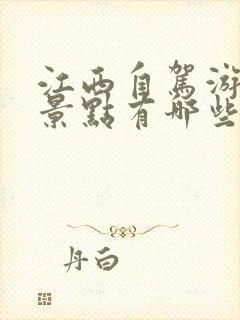 江西自駕游
景點有哪些
丹白